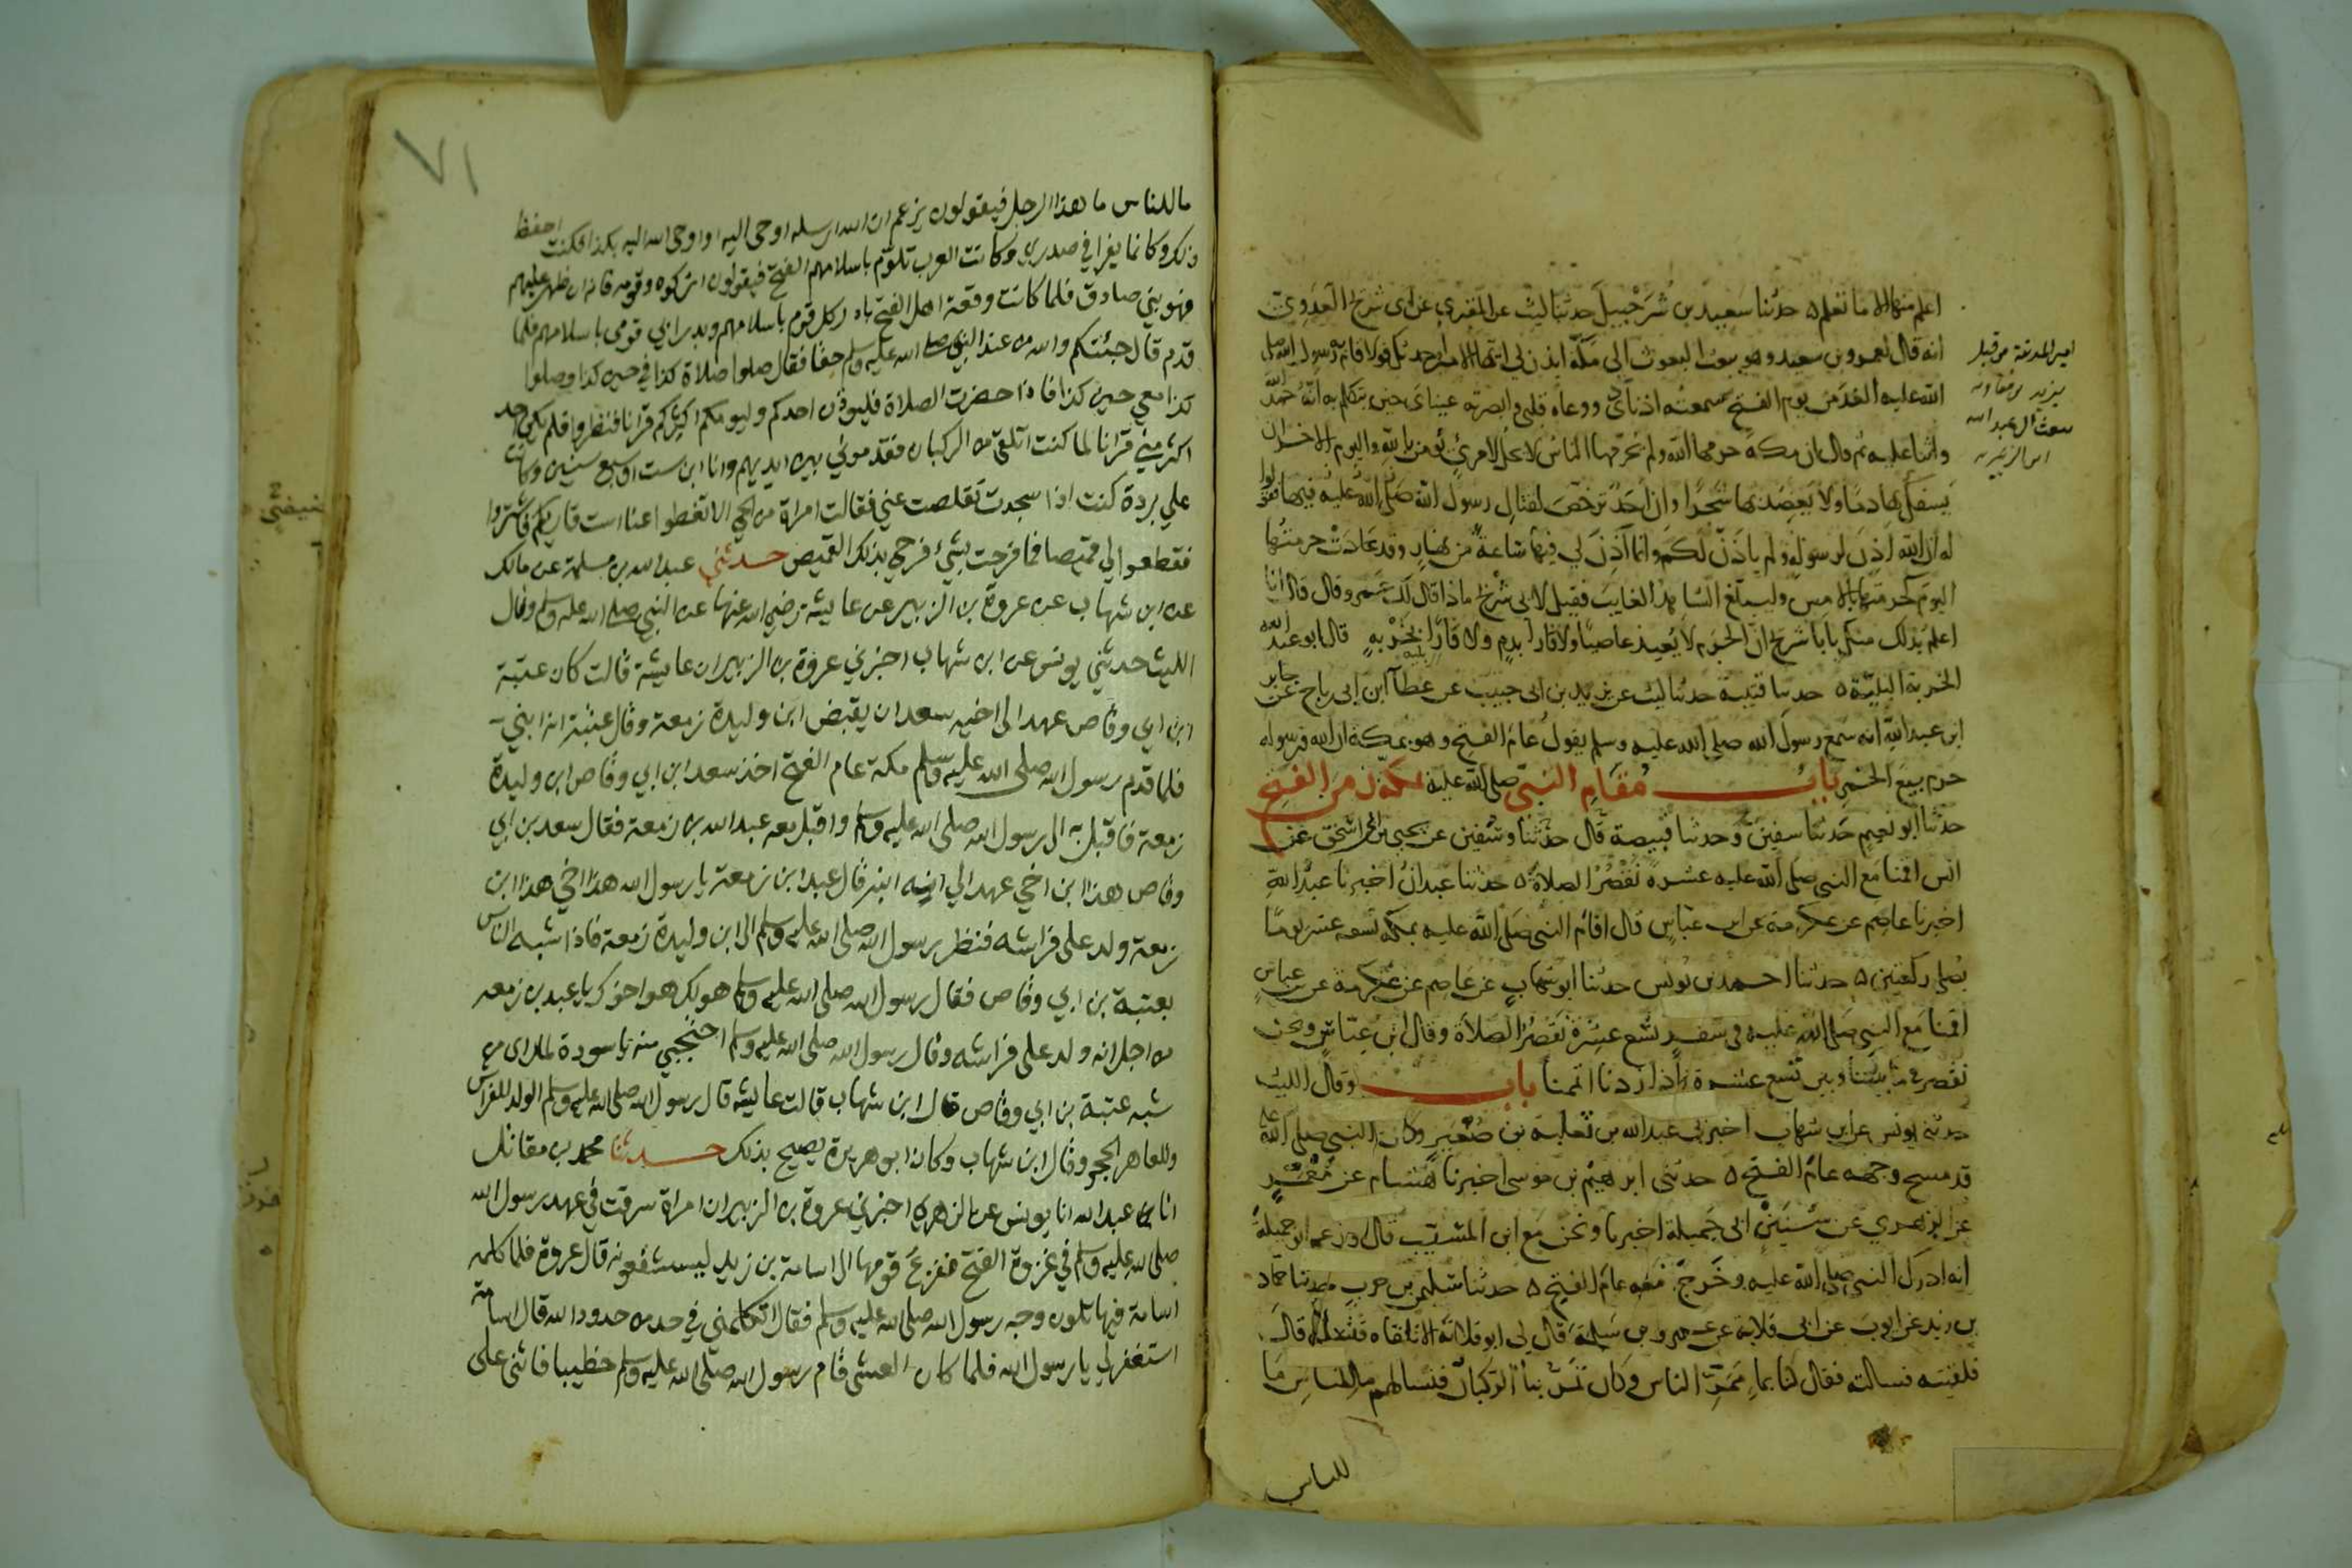 اعلم منها الا ما تعلم ه حدثنا سعيد بن شرحبيل حدثنا ليث عن المقبري عن ابي شريح العدوي
انه قال لعمرو بن سعيد وهو يبعث البعوث الى مكة ائذن لي ايها الامير احدثك قولا قام به رسول الله صلى
الله عليه الغد من يوم الفتح سمعته اذناي ووعاه قلبي وابصرته عيناي حين تكلم به انه حمد الله
واثنا عليه ثم قال ان مكة حرمها الله ولم يحرمها الناس لا يحل لامرئ يؤمن بالله واليوم الاخر ان
يسفك بها دما ولا يعضد بها شجرا وان احد ترخص لقتال رسول الله صلى الله عليه فيها فقولوا
له ان الله اذن لرسوله ولم ياذن لكم وانما اذن لي فيها ساعة من نهار وقد عادت حرمتها
اليوم كحرمتها بالامس وليبلغ الشاهد الغايب فقيل لابي شريح ماذا قال لك عمرو قال قال انا
اعلم بذلك منك يابا شريح ان الحرم لا يعيذ عاصيا ولا فارا بدم ولا فارا بخربه قال ابو عبد الله
الخربة البلية ه حدثنا قتيبة حدثنا ليث عن يزيد بن ابي حبيب عن عطا ابن ابي رباح عن جابر
ابن عبد الله انه سمع رسول الله صلى الله عليه وسلم يقول عام الفتح وهو بمكة ان الله ورسوله
حرم بيع الخمر باب مقام النبي صلى الله عليه بمكة زمن الفتح
حدثنا ابو نعيم حدثنا سفين وحدثنا قبيصة قال حدثنا سفين عن يحيى بن ابي اسحق عن
انس اقمنا مع النبي صلى الله عليه عشرة نقصر الصلاة ه حدثنا عبدان اخبرنا عبد الله
اخبرنا عاصم عن عكرمة عن ابن عباس قال اقام النبي صلى الله عليه بمكة تسعة عشر يوما
يصلي ركعتين ه حدثنا احمد بن يونس حدثنا ابو شهاب عن عاصم عن عكرمة عن ابن عباس
اقمنا مع النبي صلى الله عليه في سفر تسع عشرة نقصر الصلاة وقال ابن عباس ونحن
نقصر ما بيننا وبين تسع عشرة فاذا زدنا اتممنا باب وقال الليث
حدثني يونس عن ابن شهاب اخبرني عبد الله بن ثعلبة بن صعير وكان النبي صلى الله عليه
قد مسح وجهه عام الفتح ه حدثني ابرهيم بن موسى اخبرنا هشام عن معمر
عن الزهري عن سنين ابي جميلة اخبرنا ونحن مع ابن المسيب قال وزعم ابو جميلة
انه ادرك النبي صلى الله عليه وخرج معه عام الفتح ه حدثنا سليمن بن حرب حدثنا حماد
بن زيد عن ايوب عن ابي قلابة عن عمرو بن سلمة قال لي ابو قلابة الا تلقاه فتسأله قال
فلقيته فسالته فقال كنا بماء ممر الناس وكان يمر بنا الركبان فنسالهم ما للناس ما
امير المدينة من قبل
يزيد بن معاوية
للناس
٧١
ما للناس ما هذا الرجل فيقولون يزعم ان الله ارسله اوحى اليه او اوحى الله اليه بكذا فكنت احفظ
ذلك وكانما يغرا في صدري وكانت العرب تلوم باسلامهم الفتح فيقولون اتركوه وقومه فانه ان ظهر عليهم
فهو نبي صادق فلما كانت وقعة اهل الفتح بادر كل قوم باسلامهم وبدر ابي قومي باسلامهم فلما
قدم قال جئتكم والله من عند النبي صلى الله عليه وسلم حقا فقال صلوا صلاة كذا في حين كذا وصلوا
كذا في حين كذا فاذا حضرت الصلاة فليوذن احدكم وليومكم اكثركم قرانا فنظروا فلم يكن احد
اكثر مني قرانا لما كنت اتلقى من الركبان فقدموني بين ايديهم وانا ابن ست او سبع سنين وكانت
علي بردة كنت اذا سجدت تقلصت عني فقالت امراة من الحي الا تغطوا عنا است قاريكم فاشتروا
فقطعوا لي قميصا فما فرحت بشيء فرحي بذلك القميص حدثني عبد الله بن مسلمة عن مالك
عن ابن شهاب عن عروة بن الزبير عن عايشة رضي الله عنها عن النبي صلى الله عليه وسلم وقال
الليث حدثني يونس عن ابن شهاب اخبرني عروة بن الزبير ان عايشة قالت كان عتبة
ابن ابي وقاص عهد الى اخيه سعد ان يقبض ابن وليدة زمعة وقال عتبة انه ابني
فلما قدم رسول الله صلى الله عليه وسلم مكة عام الفتح اخذ سعد ابن ابي وقاص ابن وليدة
زمعة فاقبل به الى رسول الله صلى الله عليه وسلم واقبل معه عبد الله بن زمعة فقال سعد بن ابي
وقاص هذا ابن اخي عهد الي انه ابنه قال عبد ابن زمعة يا رسول الله هذا اخي هذا ابن
زمعة ولد على فراشه فنظر رسول الله صلى الله عليه وسلم الى ابن وليدة زمعة فاذا اشبه الناس
بعتبة بن ابي وقاص فقال رسول الله صلى الله عليه وسلم هو لك هو اخوك يا عبد بن زمعه
من اجل انه ولد على فراشه وقال رسول الله صلى الله عليه وسلم احتجبي منه يا سودة لما راى من
شبه عتبة بن ابي وقاص قال ابن شهاب قالت عايشه قال رسول الله صلى الله عليه وسلم الولد للفراش
وللعاهر الحجر وقال ابن شهاب وكان ابو هريرة يصيح بذلك حدثنا محمد بن مقاتل
انا عبد الله انا يونس عن الزهري اخبرني عروة بن الزبير ان امراة سرقت في عهد رسول الله
صلى الله عليه وسلم في غزوة الفتح ففزع قومها الى اسامة بن زيد يستشفعونه قال عروة فلما كلمه
اسامة فيها تلون وجه رسول الله صلى الله عليه وسلم فقال اتكلمني في حد من حدود الله قال اسامة
استغفر لي يا رسول الله فلما كان العشي قام رسول الله صلى الله عليه وسلم خطيبا فاثنى على